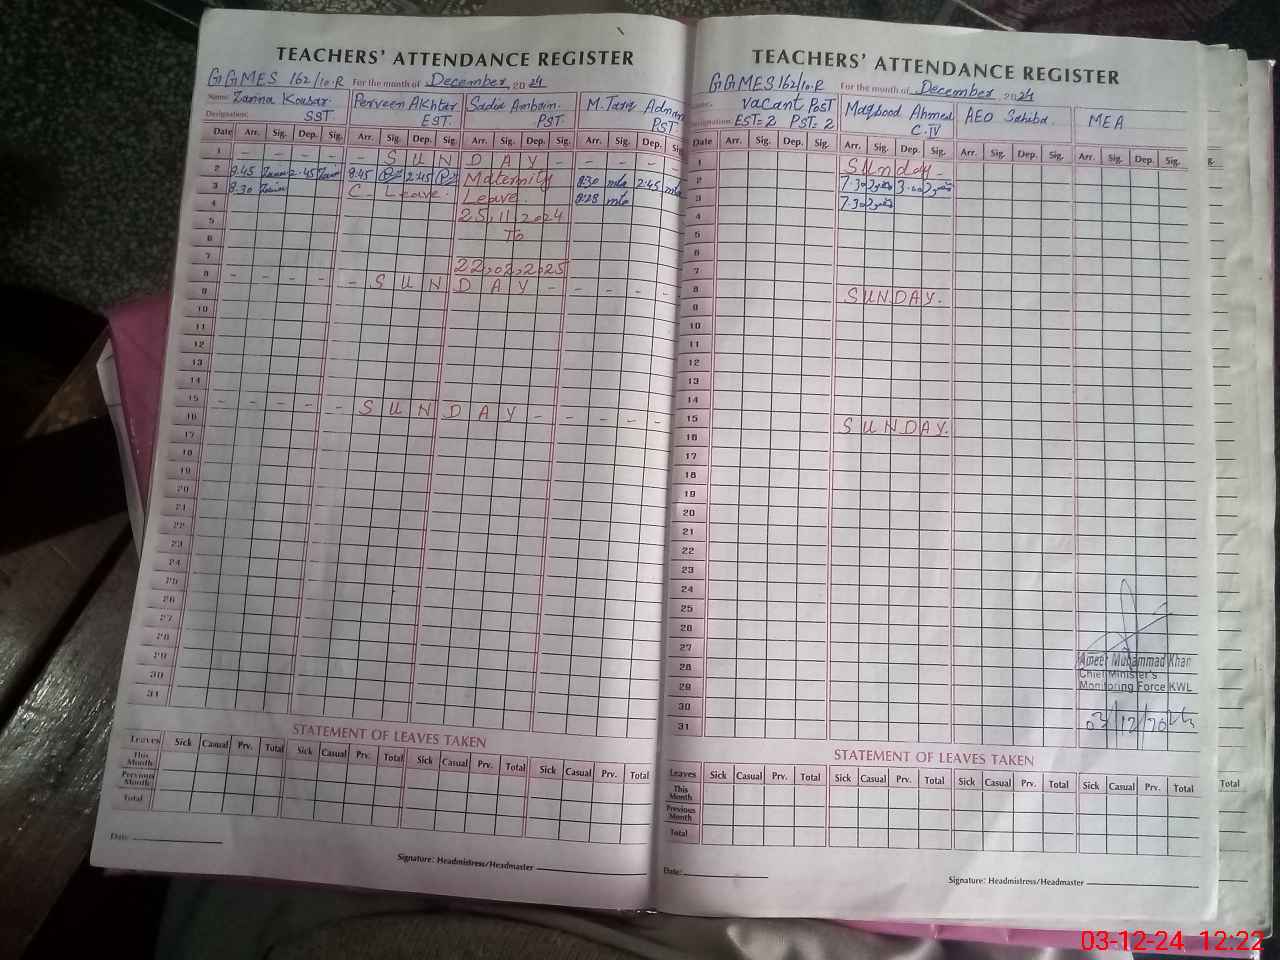 TEACHERS' ATTENDANCE REGISTER
GGMES 162/10.R For the month of December 2024
Name: Zarina Kousar Perveen Akhtar Sadia Ambrin. M. Tariq Adnan
Designation: SST. EST. PST. PST
Date Arr. Sig. Dep. Sig. Arr. Sig. Dep. Sig. Arr. Sig. Dep. Sig. Arr. Sig. Dep. Sig.
1 - - - - - S U N D A Y - - - - -
2 8.45 2.45 8.45 2:45 Maternity 8:30 2:45
3 8.30 C - Leave. Leave. 8:28
4 25.11.2024
5 To
6
7 22.02.2025
8 - - - - - S U N D A Y - - - - -
9
10
11
12
13
14
15 - - - - - S U N D A Y - - - - -
16
17
18
19
20
21
22
23
24
25
26
27
28
29
30
31
STATEMENT OF LEAVES TAKEN
Leaves Sick Casual Prv. Total Sick Casual Prv. Total Sick Casual Prv. Total Sick Casual Prv. Total
This Month
Previous Month
Total
Date:
Signature: Headmistress/Headmaster
TEACHERS' ATTENDANCE REGISTER
GGMES 162/10.R For the month of December 2024
Vacant Post Maqbood Ahmed AEO Sahiba. MEA
Designation: EST=2 PST=2 C.IV
Date Arr. Sig. Dep. Sig. Arr. Sig. Dep. Sig. Arr. Sig. Dep. Sig. Arr. Sig. Dep. Sig.
1 Sunday -
2 7.30 3.00
3 7.30
4
5
6
7
8 SUNDAY.
9
10
11
12
13
14
15 SUNDAY.
16
17
18
19
20
21
22
23
24
25
26
27
28
29
30
31
Ameer Muhammad Khan
Chief Minister's
Monitoring Force KWL
03/12/2024
STATEMENT OF LEAVES TAKEN
Leaves Sick Casual Prv. Total Sick Casual Prv. Total Sick Casual Prv. Total Sick Casual Prv. Total
This Month
Previous Month
Total
Date:
Signature: Headmistress/Headmaster
Sig.
Total
03-12-24 12:22